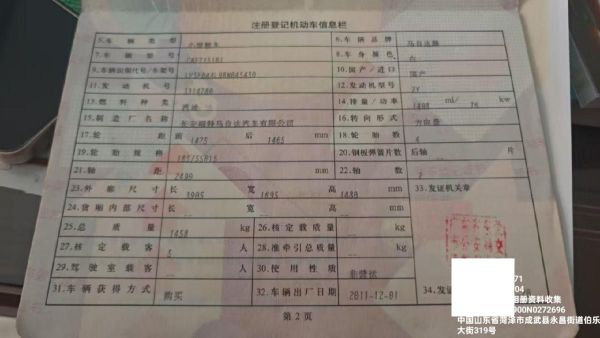 注册登记机动车信息栏
5.车辆类型 小型轿车 6.车辆品牌 马自达牌
7.车辆型号 8.车身颜色 白
9.车辆识别代号/车架号 10.国产/进口 国产
11.发动机号 12.发动机型号 ZY
13.燃料种类 汽油 14.排量/功率 1498 ml/ 76 kw
15.制造厂名称 长安福特马自达汽车有限公司 16.转向形式 方向盘
17.轮距 前 1475 后 1465 mm 18.轮胎数 4
19.轮胎规格 185/55R15 20.钢板弹簧片数 后轴 -- 片
21.轴距 mm 22.轴数 2
23.外廓尺寸 长 宽 1695 高 1480 mm 33.发证机关章
24.货厢内部尺寸 长 -- 宽 -- 高 -- mm
25.总质量 1458 kg 26.核定载质量 -- kg
27.核定载客 5 人 28.准牵引总质量 -- kg
29.驾驶室载客 -- 人 30.使用性质 非营运
31.车辆获得方式 购买 32.车辆出厂日期 2011-12-01 34.发证
第 2 页
71
04
相册资料收集
000N0272696
中国山东省菏泽市成武县永昌街道伯乐
大街319号